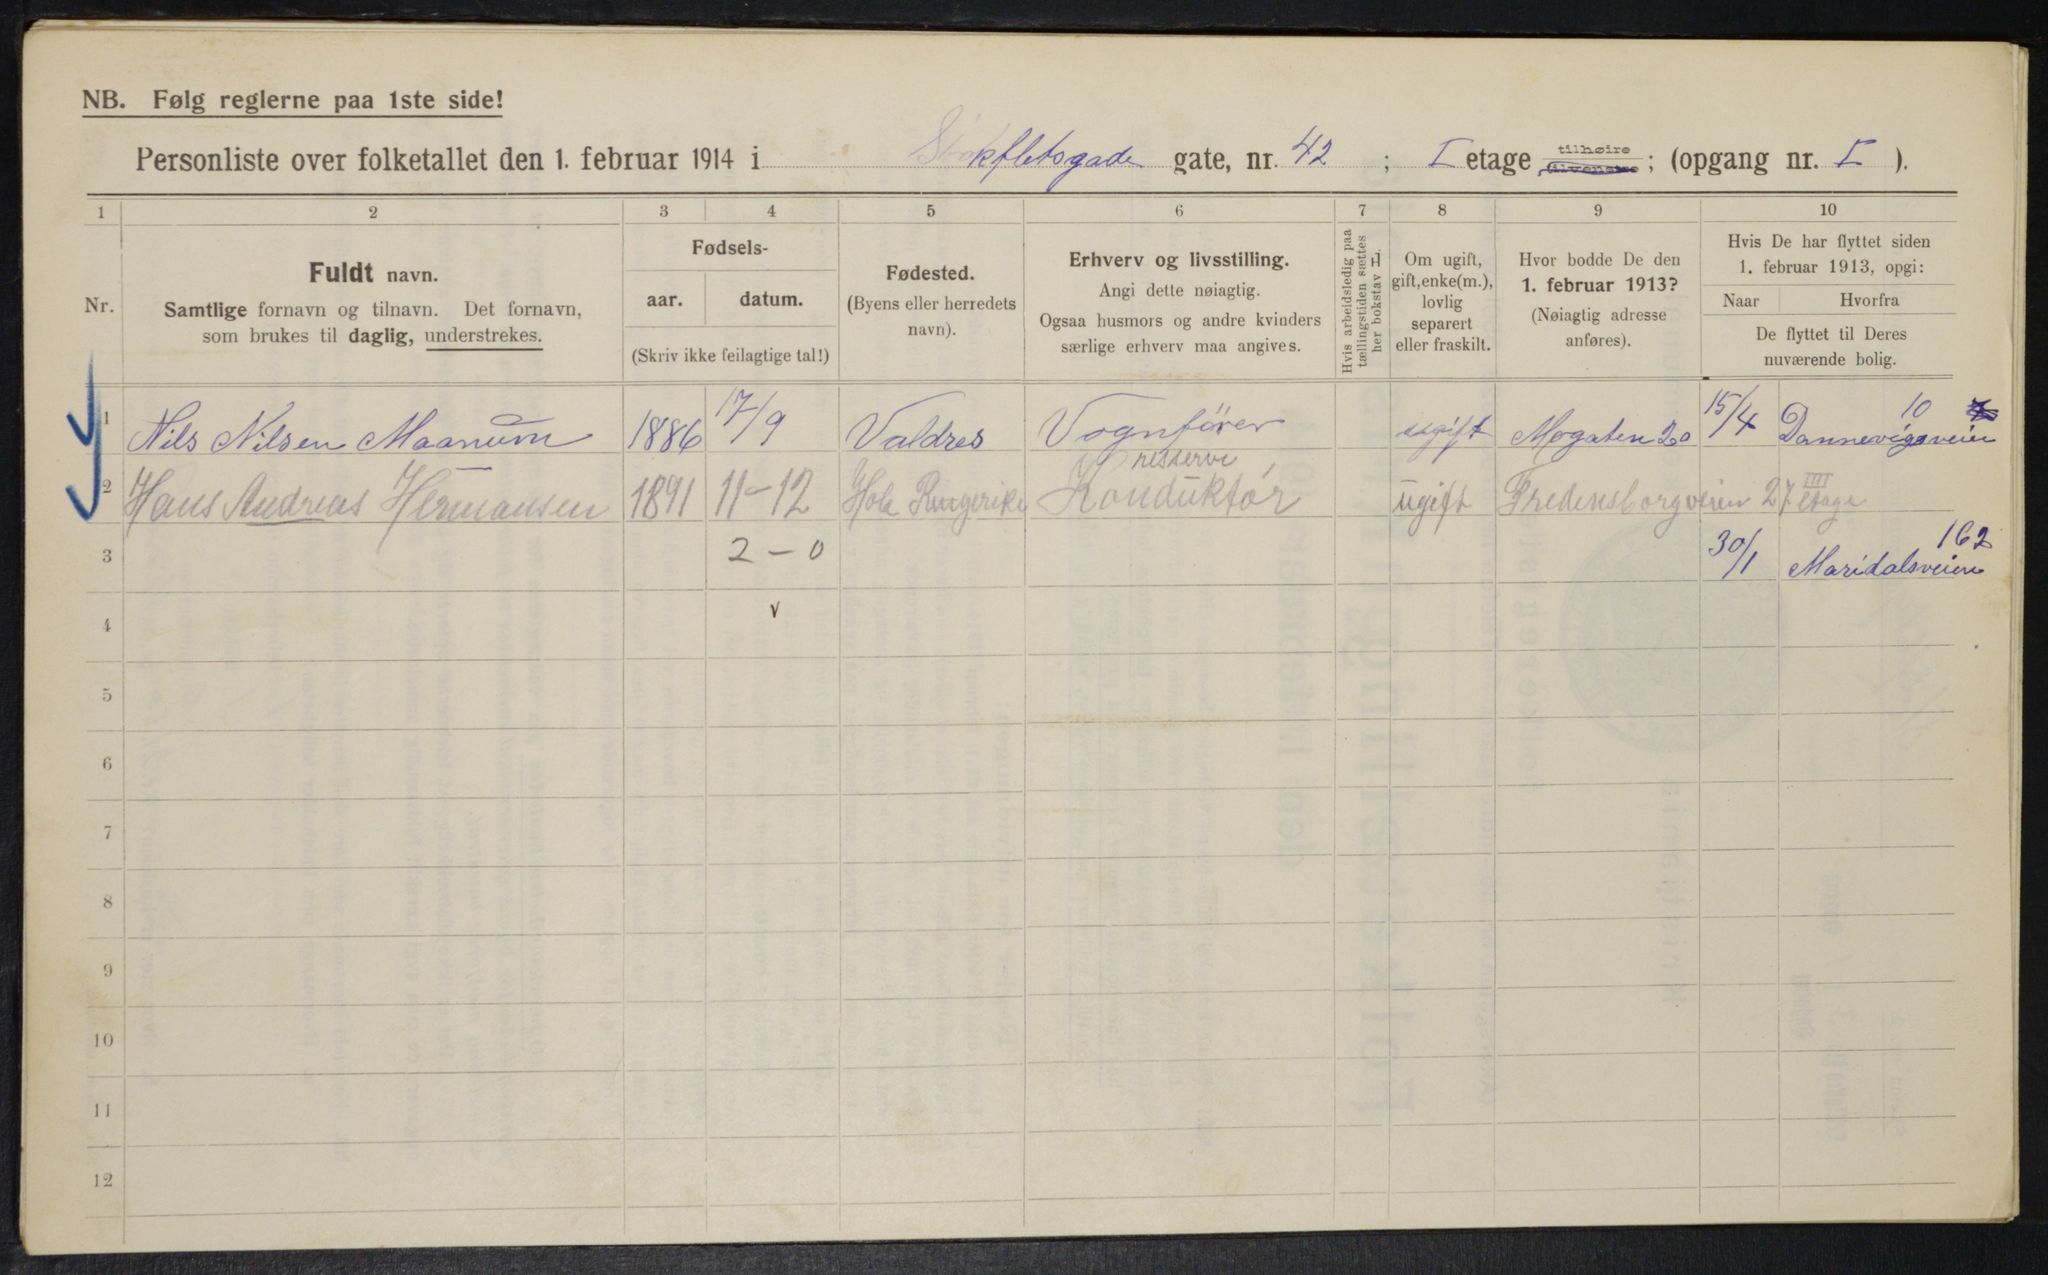 NB. Følg reglerne paa 1ste side!
Personliste over folketallet den 1. februar 1914 i Stokfletsgade gate, nr. 42 ; I etage tilhøire tilvenstre ; (opgang nr. I ).
1 2 3 4 5 6 7 8 9 10
Nr.
Fuldt navn.
Samtlige fornavn og tilnavn. Det fornavn,
som brukes til daglig, understrekes.
Fødsels-
aar. datum.
(Skriv ikke feilagtige tal!)
Fødested.
(Byens eller herredets
navn).
Erhverv og livsstilling.
Angi dette nøiagtig.
Ogsaa husmors og andre kvinders
særlige erhverv maa angives.
Hvis arbeidsledig paa
tællingstiden sættes
her bokstav L.
Om ugift,
gift, enke(m.),
lovlig
separert
eller fraskilt.
Hvor bodde De den
1. februar 1913?
(Nøiagtig adresse
anføres).
Hvis De har flyttet siden
1. februar 1913, opgi:
Naar Hvorfra
De flyttet til Deres
nuværende bolig.
1 Nils Nilsen Maanum 1886 17/9 Valdres Vognfører ugift Mogaten 20 15/4 Dannevigsveien 10
2 Hans Andreas Hermansen 1891 11-12 Hole Ringerike resserve Konduktør ugift Fredensborgveien 27 III etage
3 2-0 30/1 Maridalsveien 162
4 v
5
6
7
8
9
10
11
12